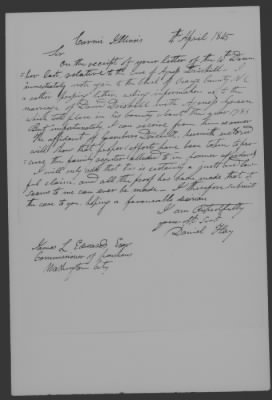 Carmi Illinois 4th April 1845
Sir
On the receipt of your letter of the
last relative to the case of Agnes Driskill I
immediately wrote again to the Clerk of Orange County N.C.
a rather letter, asking information as to the
marriage of Driskill with Agnes
which took place in his county about the year 1781
But unfortunately I can receive from them no answer
The affidavit of Driskill, herewith enclosed
will show that proper efforts have been taken to pro-
cure the family register alluded to in former
I will only add that this is certainly a just
claim, and all the proof has been made that it
seems to me can ever be made. I therefore submit
the case to you, hoping a favourable decision
I am Respectfully
your Ob. Servt
Daniel Hay
James L Edwards Esqr
Commissioner of Pensions
Washington City